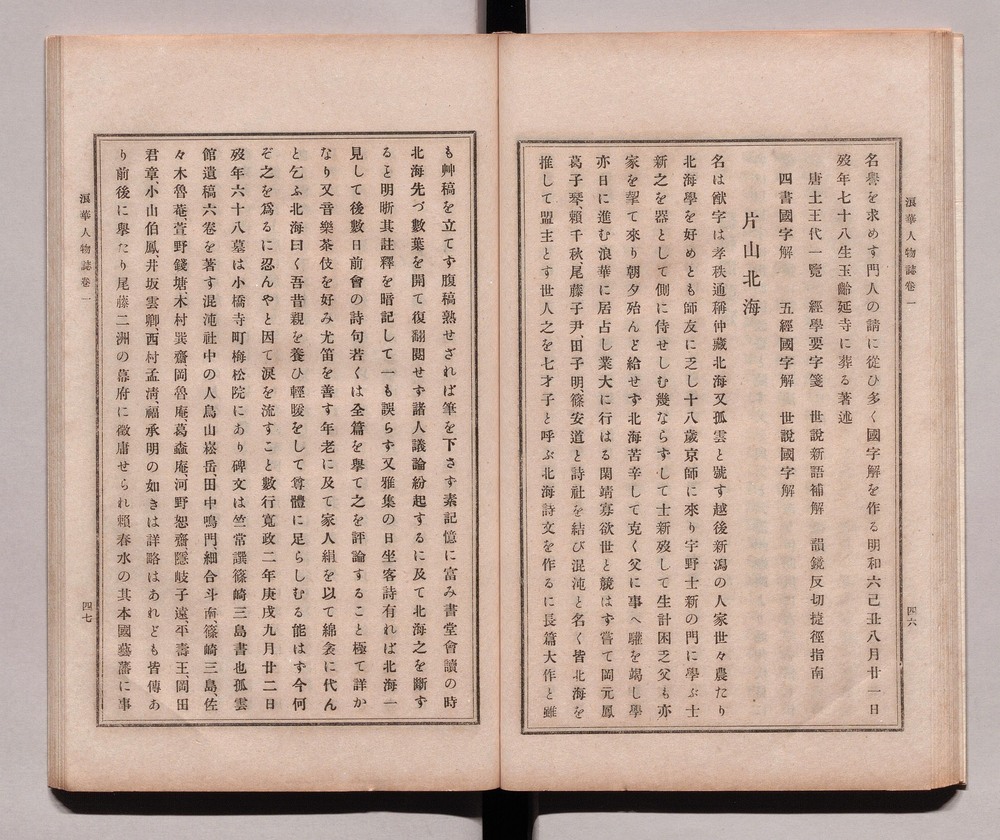 浪華人物誌卷一
四六
名譽を求めす門人の請に從ひ多く國字解を作る明和六己丑八月廿一日
歿年七十八生玉齡延寺に葬る著述
唐土王代一覽　經學要字箋　世說新語補解　韻鏡反切捷徑指南
四書國字解　五經國字解　世說國字解
片山北海
名は猷字は孝秩通稱仲藏北海又孤雲と號す越後新潟の人家世々農たり
北海學を好めとも師友に乏し十八歲京師に來り宇野士新の門に學ふ士
新之を器として側に侍せしむ幾ならすして士新歿して生計困乏父も亦
家を挈て來り朝夕殆んと給せす北海苦辛して克く父に事へ驩を竭し學
亦日に進む浪華に居占し業大に行はる閑靖寡欲世と競はす嘗て岡元鳳
葛子琴、賴千秋、尾藤子尹田子明、篠安道と詩社を結び混沌と名く皆北海を
推して盟主とす世人之を七才子と呼ぶ北海詩文を作るに長篇大作と雖
も艸稿を立てす腹稿熟せされば筆を下さす素記憶に富み書堂會讀の時
北海先づ數葉を開て復翻閱せす諸人議論紛起するに及て北海之を斷す
ると明晰其註釋を暗記して一も誤らす又雅集の日坐客詩有れば北海一
見して後數日前會の詩句若くは全篇を擧て之を評論すること極て詳か
なり又音樂茶伎を好み尤笛を善す年老に及て家人絹を以て綿衾に代ん
と乞ふ北海曰く吾昔親を養ひ輕暖をして尊體に足らしむる能はす今何
ぞ之を爲るに忍んやと因て淚を流すこと數行寬政二年庚戌九月廿二日
歿年六十八墓は小橋寺町梅松院にあり碑文は竺常譔篠崎三島書也孤雲
館遺稿六卷を著す混沌社中の人鳥山崧岳、田中鳴門、細合斗南篠崎三島、佐
々木魯菴、萱野錢塘木村巽齋岡魯庵葛蟲庵、河野恕齋、隱岐子遠、平壽王、岡田
君章、小山伯鳳、井坂雲卿、西村孟淸、福承明の如きは詳略はあれども皆傳あ
り前後に擧たり尾藤二洲の幕府に徵庸せられ賴春水の其本國藝藩に事
浪華人物誌卷一
四七